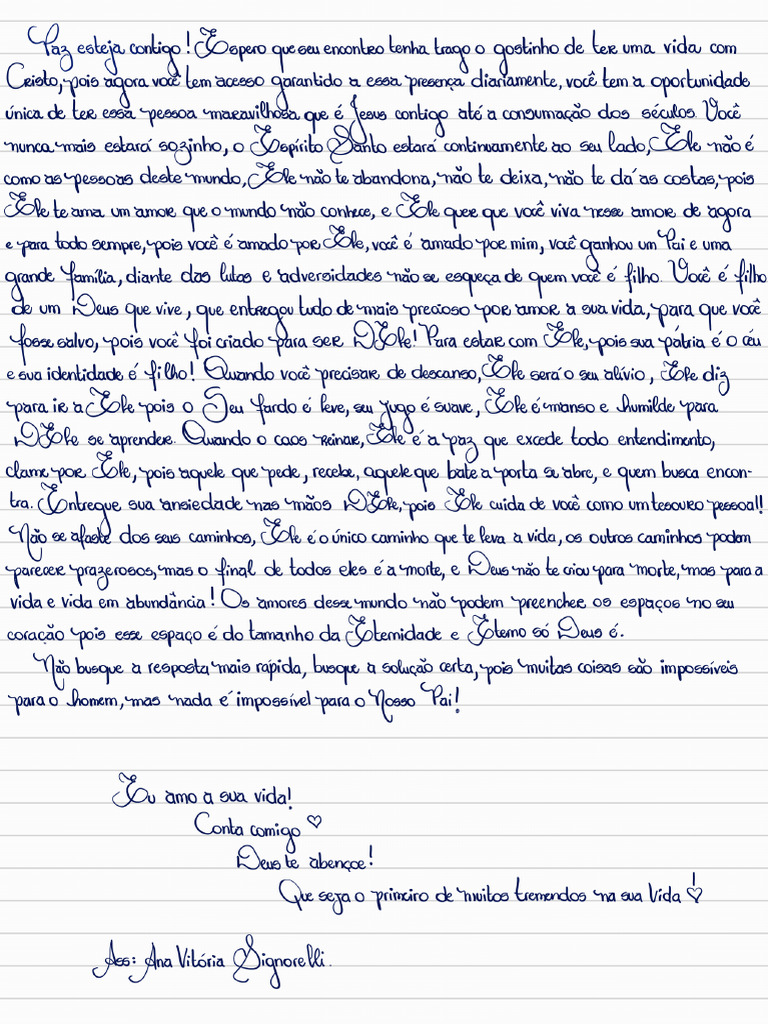 Paz esteja contigo! Espero que seu encontro tenha trago o gostinho de ter uma vida com
Cristo, pois agora você tem acesso garantido a essa presença diariamente, você tem a oportunidade
única de ter essa pessoa maravilhosa que é Jesus contigo até a consumação dos séculos. Você
nunca mais estará sozinho, o Espírito Santo estará continuamente ao seu lado, Ele não é
como as pessoas deste mundo, Ele não te abandona, não te deixa, não te dá as costas, pois
Ele te ama um amor que o mundo não conhece, e Ele quer que você viva nesse amor de agora
e para todo sempre, pois você é amado por Ele, você é amado por mim, você ganhou um Pai e uma
grande família, diante das lutas e adversidades não se esqueça de quem você é filho. Você é filho
de um Deus que vive, que entregou tudo de mais precioso por amor a sua vida, para que você
fosse salvo, pois você foi criado para ser DEle! Para estar com Ele, pois sua pátria é o céu
e sua identidade é filho! Quando você precisar de descanso, Ele será o seu alívio, Ele diz
para ir a Ele pois o Seu fardo é leve, seu jugo é suave, Ele é manso e humilde para
DEle se aprender. Quando o caos reinar, Ele é a paz que excede todo entendimento,
clame por Ele, pois aquele que pede, recebe, aquele que bate a porta se abre, e quem busca encon-
tra. Entregue sua ansiedade nas mãos DEle, pois Ele cuida de você como um tesouro pessoal!!
Não se afaste dos seus caminhos, Ele é o único caminho que te leva a vida, os outros caminhos podem
parecer prazerosos, mas o final de todos eles é a morte, e Deus não te criou para morte, mas para a
vida e vida em abundância! Os amores desse mundo não podem preencher os espaços no seu
coração pois esse espaço é do tamanho da Eternidade e Eterno só Deus é.
Não busque a resposta mais rápida, busque a solução certa, pois muitas coisas são impossíveis
para o homem, mas nada é impossível para o Nosso Pai!
Eu amo a sua vida!
Conta comigo ♡
Deus te abençoe!
Que seja o primeiro de muitos tremendos na sua Vida!♡
Ass: Ana Vitória Signorelli.